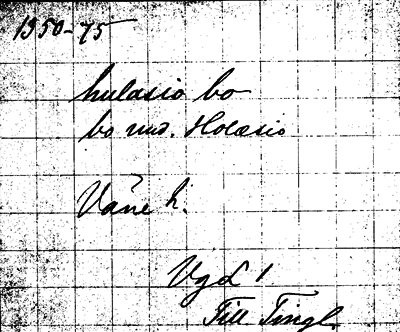 1350-75
hulasio bo
bo und. Holæsio
Väne h.
Vgd 1
Till Tingl.